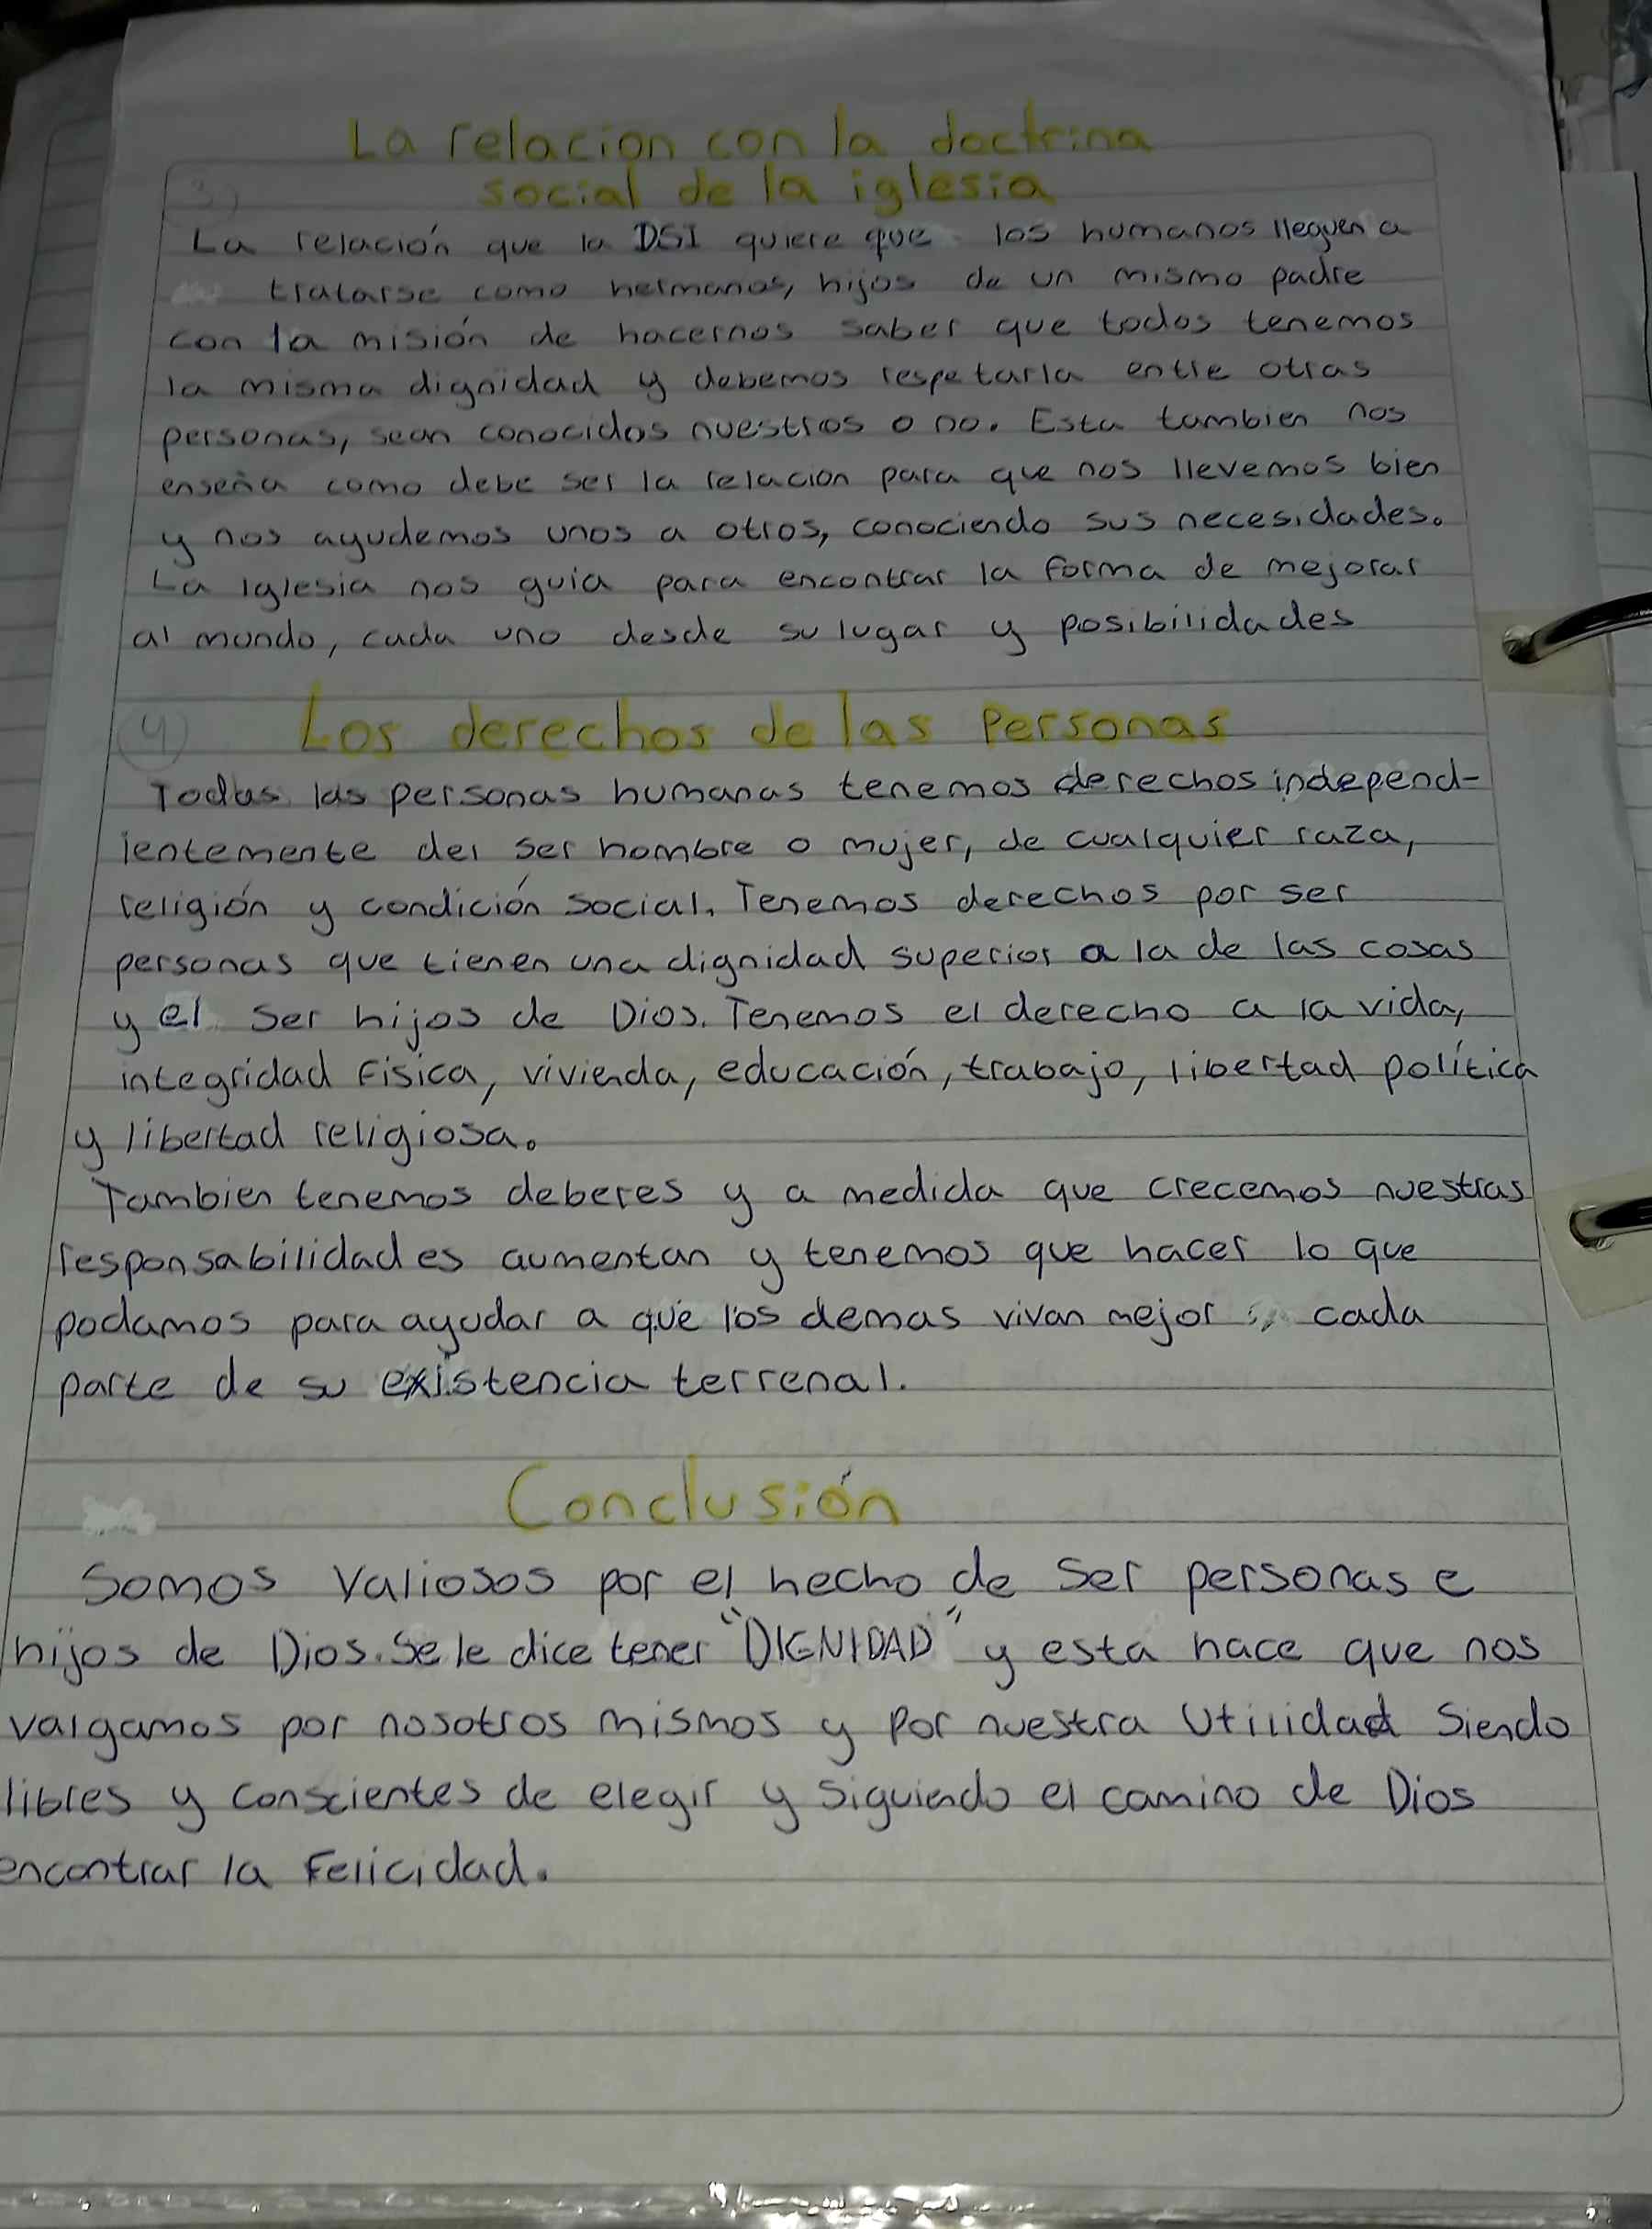 La relacion con la doctrina
social de la iglesia
3)
La relación que la DSI quiere que los humanos lleguen a
tratarse como hermanos, hijos de un mismo padre
con la misión de hacernos saber que todos tenemos
la misma dignidad y debemos respetarla entre otras
personas, sean conocidos nuestros o no. Esta tambien nos
enseña como debe ser la relacion para que nos llevemos bien
y nos ayudemos unos a otros, conociendo sus necesidades.
La Iglesia nos guia para encontrar la forma de mejorar
al mundo, cada uno desde su lugar y posibilidades
4) Los derechos de las Personas
Todas las personas humanas tenemos derechos independ-
ientemente del ser hombre o mujer, de cualquier raza,
religión y condición social. Tenemos derechos por ser
personas que tienen una dignidad superior a la de las cosas
y el ser hijos de Dios. Tenemos el derecho a la vida,
integridad fisica, vivienda, educación, trabajo, libertad política
y libertad religiosa.
Tambien tenemos deberes y a medida que crecemos nuestras
responsabilidades aumentan y tenemos que hacer lo que
podamos para ayudar a que los demas vivan mejor cada
parte de su existencia terrenal.
Conclusión
Somos valiosos por el hecho de ser personas e
hijos de Dios. Se le dice tener "DIGNIDAD" y esta hace que nos
valgamos por nosotros mismos y por nuestra utilidad siendo
libres y conscientes de elegir y siguiendo el camino de Dios
encontrar la Felicidad.